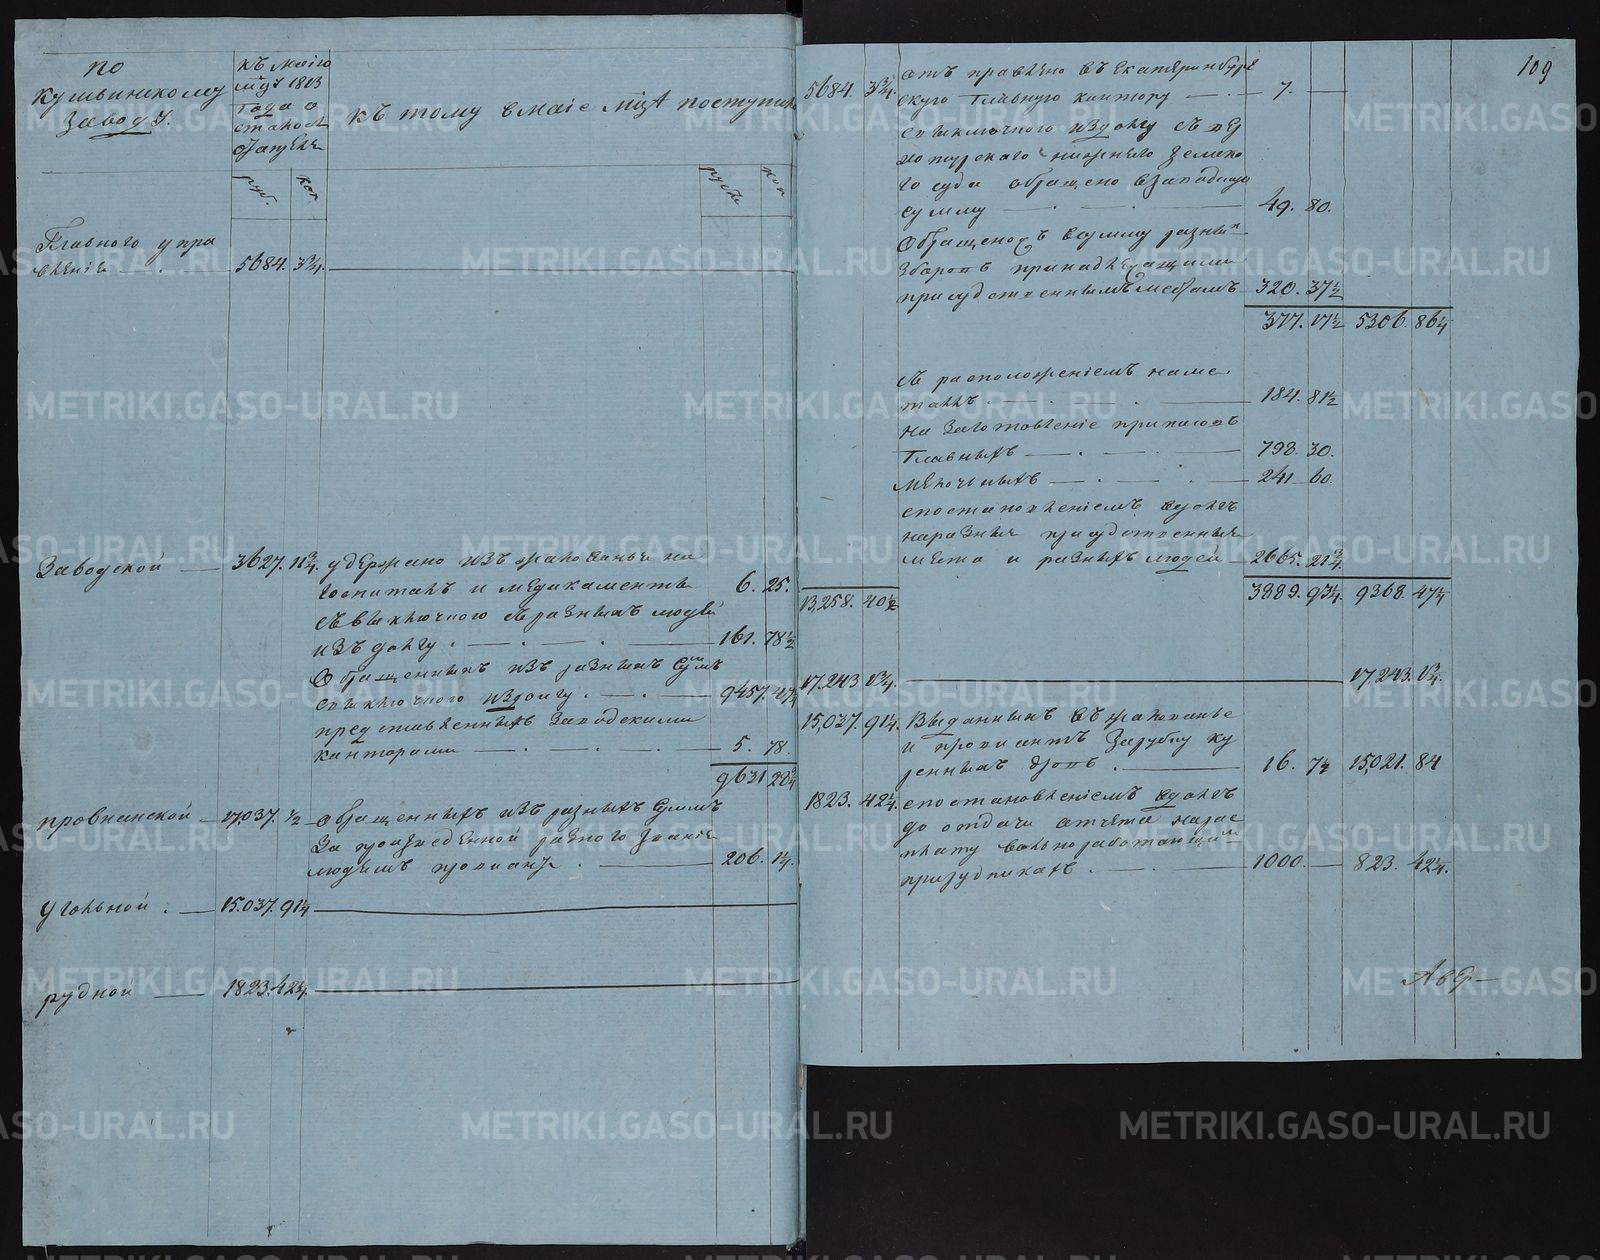 по
кушвинскому
заводу.
къ маію
мцу 1803
года о
стамом
къ тому вмаіе мцѣ поступило
руб.
коп
рубли
коп
Главного упра
вленіе 5684. 3¾.
Заводской 3627. 11¾. удержано изъ жалованья на
госпиталь и медикаменты 6. 25.
съ выключного съ разныхъ людей
изъ долгу 161. 78½
Обращенныхъ изъ разныхъ сумъ
сыключного издолгу 9457. 47¼
представленныхъ Заводскими
канторами 5. 78.
9631 28¾
провианской 17,037. ½ Обращенныхъ изъ разныхъ сумъ
За произведенной разного званія
людямъ провиантъ 206. 1¼.
угольной 15.037. 91¼
рудной 1823. 42¼.
109
5684. 3¾. отъ правлено въ Екатеринбург
скую Главную кантору 7.
сыключного издолгу съ вер
хотурскаго нижняго земско
го суда обращено взаводскую
сумму 49. 80.
Обращено въ сумму разныхъ
зборовъ принадлежащими
присудственнымъ местамъ 320. 37½
377. 17½ 5306. 86¼
съ расположеніемъ наме
таллъ 184. 81½
на Заготовленіе припасовъ
Главныхъ 798. 30.
мѣлочныхъ 241 60.
спостановленіемъ вдолгъ
наразныя присудственныя
мѣста и разныхъ людей 2665. 21¾
13,258. 40½ 3889. 93¼. 9368. 47¼
17.243 1¾. 17,243. 1¾.
15,037. 91¼. Выданныхъ въ жалованье
и провиантъ Зарубку ку
ренныхъ дровъ 16. 7¼ 15,021. 84
1823. 42¼. спостановленіемъ вдолгъ
до отдачи отчета нарас
плату вольноработающимъ
прирудникахъ 1000. 823. 42¼.
METRIKI.GASO-URAL.RU